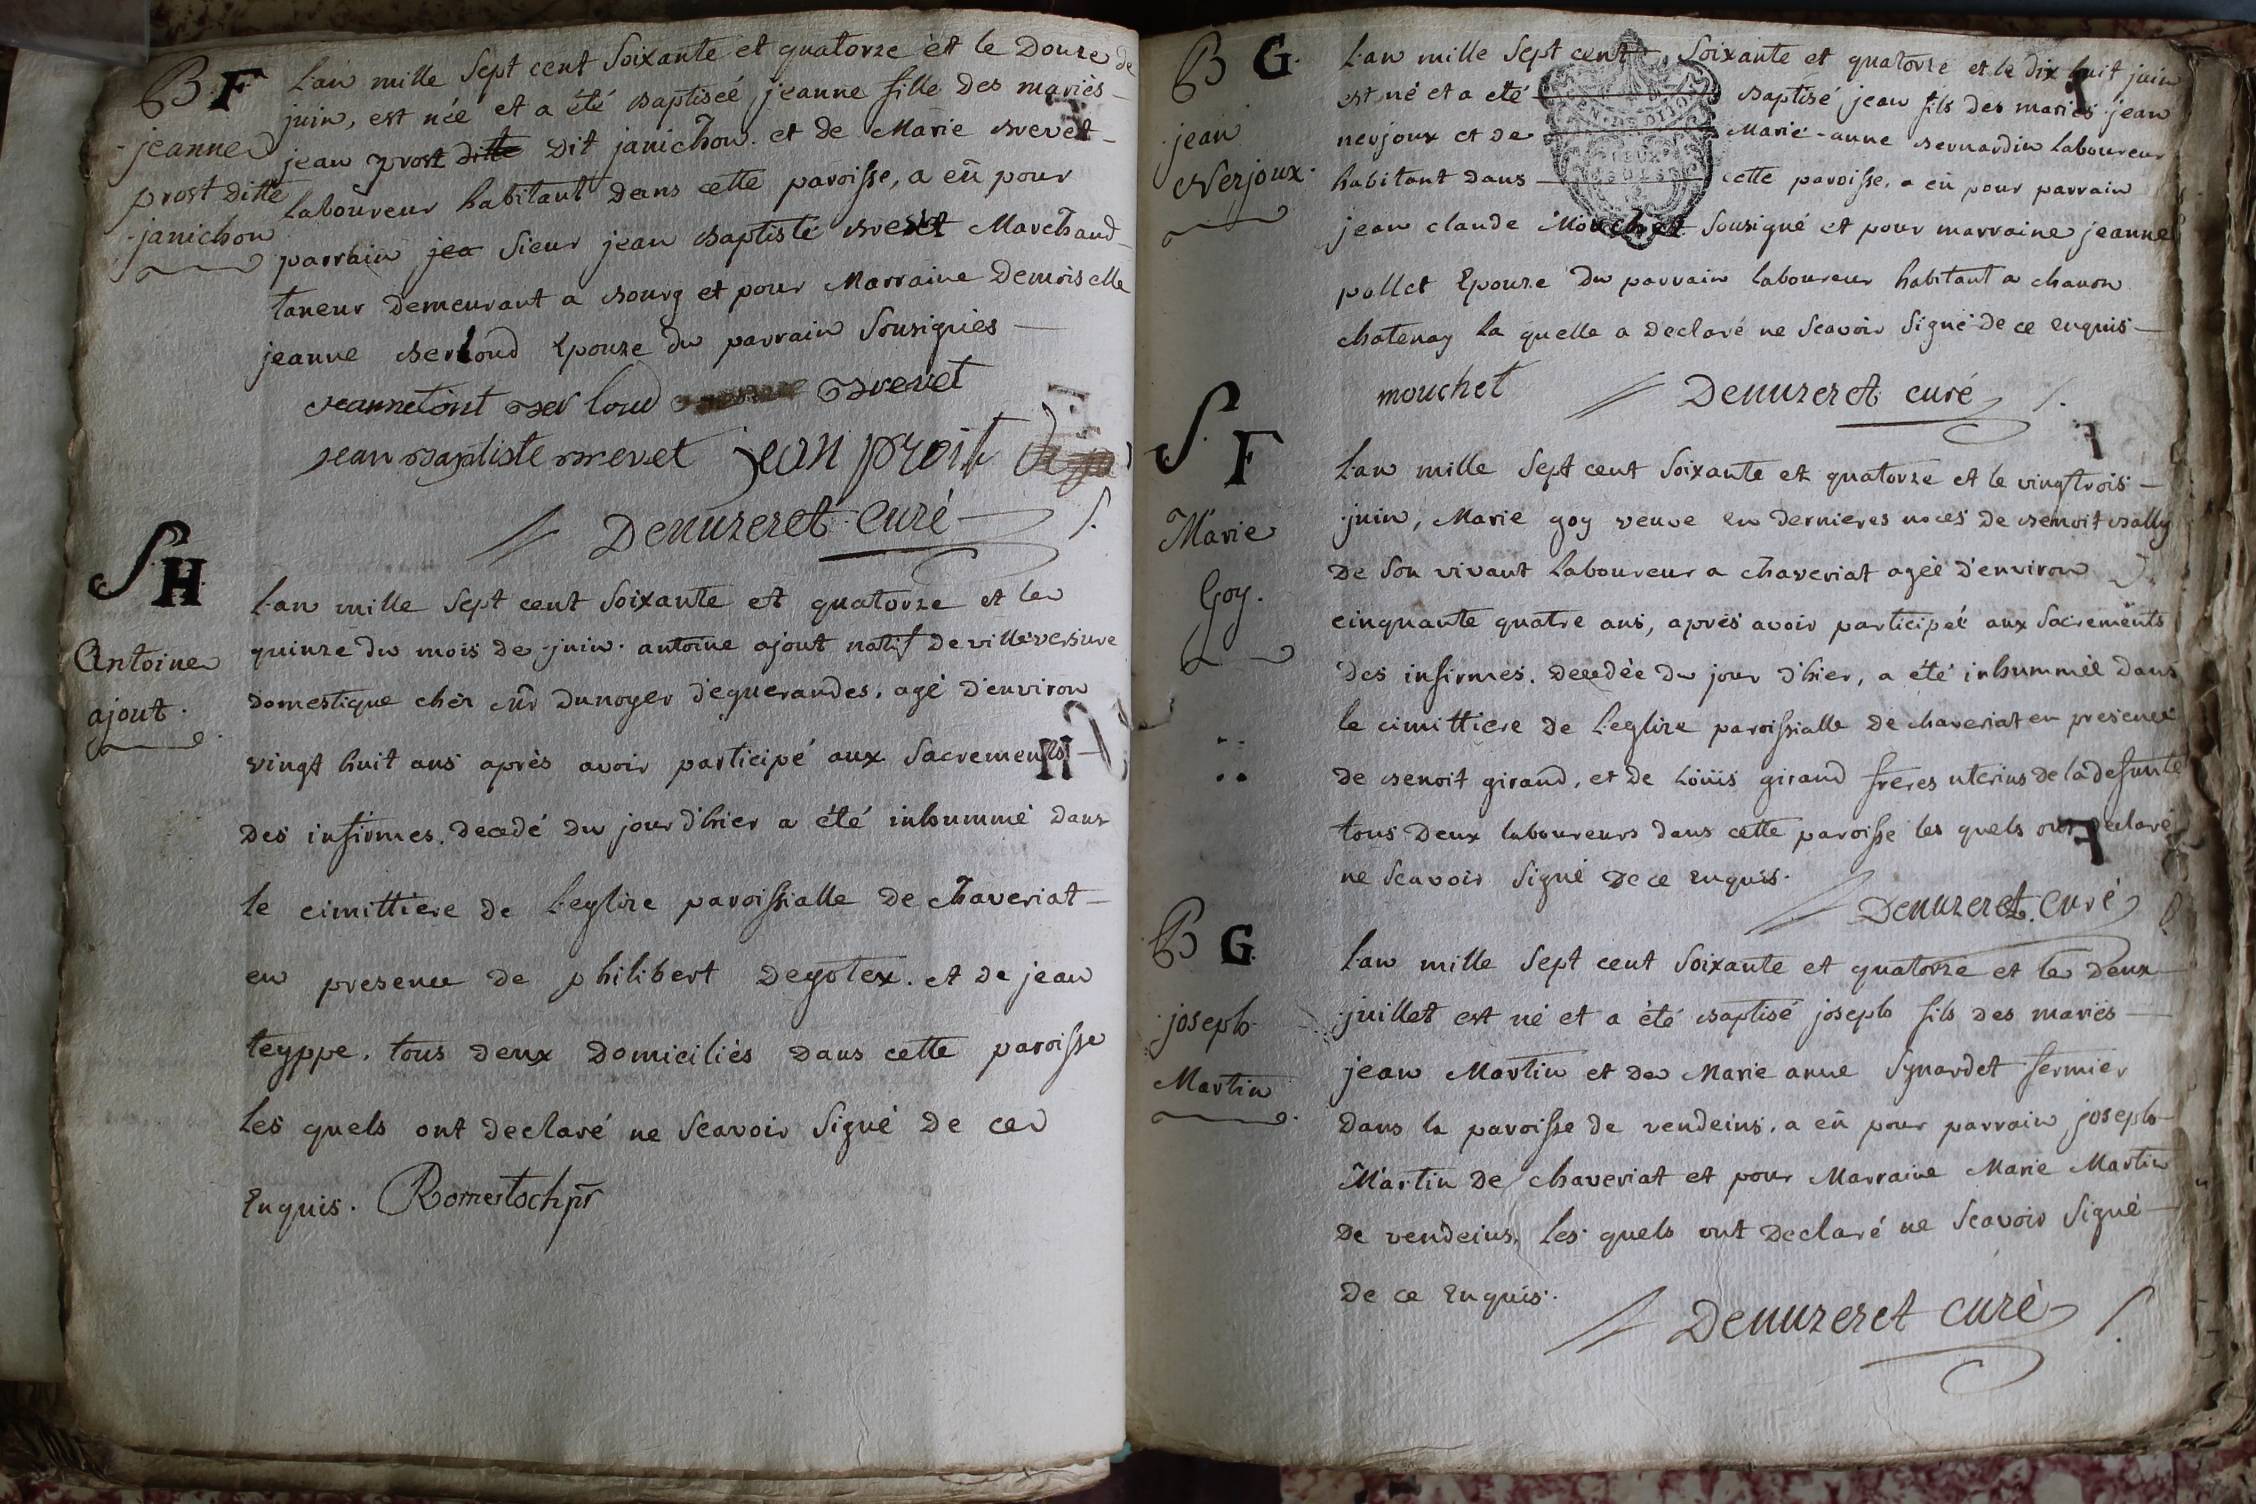 B. F
jeanne
prost ditte
janichon
L'an mille Sept cent Soixante et quatorze et le Douze de
juin, est née et a été Baptiseé jeanne fille Des mariés
jean prost ditte Dit janichon. et de Marie Brevet
Laboureur habitant Dans cette paroisse, a eü pour
parrain jea Sieur jean Baptiste Brevet Marchand
taneur Demeurant a Bourg et pour Marraine Demoiselle
jeanne Berloud Epouze du parrain Sousignies
jeannetont Berloud Brevet
jean Baptiste Brevet jean proit
Denuzeret Curé
S H
Antoine
ajout.
L'an mille Sept cent Soixante et quatorze et le
quinze du mois de juin. antoine ajout natif de villeversure
Domestique chés Sr Dunoyer d'eguerandes, agé D'environ
vingt huit ans après avoir participé aux Sacrements
Des infirmes, Decedé du jour d'hier a été inhummé Dans
le cimittiere de L'eglize paroissialle de Chaveriat
en presence de philibert Degotex. et de jean
teyppe, tous Deux Domiciliés Dans cette paroisse
Les quels ont declaré ne Scavoir Signé de ce
Enquis. Romestoch ptr
B G.
jean
Nerjoux.
L'an mille Sept cent, Soixante et quatorze et le dix huit juin
est né et a eté Baptisé jean fils des mariés jean
nerjoux et de Marie-anne Bernardin Laboureur
habitant Dans cette paroisse, a eü pour parrain
jean claude Mouchet Sousigné et pour marraine jeanne
pallet Epouze Du parrain laboureur habitant a chanon
chatenay la quelle a Declaré ne Scavoir Signé de ce enquis
mouchet Denuzeret curé
S. F
Marie
Goy.
L'an mille Sept cent Soixante et quatorze et le vingtrois
juin, Marie goy veuve En dernieres noces de Benoit Bally
De Son vivant Laboureur a chaveriat ageé d'environ
cinquante quatre ans, aprés avoir participée aux Sacrements
Des infirmes. Decedée du jour D'hier, a été inhummée Dans
le cimittiere de L'eglize paroissialle de chaveriat en presence
de Benoit giraud, et de Loüis giraud freres uterins de la defunte
tous Deux laboureurs dans cette paroisse les quels ont declaré
ne Scavoir Signé De ce Enquis.
Denuzeret. Curé
B G.
joseph
Martin
L'an mille Sept cent Soixante et quatorze et le Deux
juillet est né et a été Baptisé joseph fils des mariés
jean Martin et de Marie anne Synardet fermier
Dans la paroisse de vendeins, a eü pour parrain joseph
Martin de chaveriat et pour Marraine Marie Martin
De vendeins, Les quels ont Declaré ne Scavoir Signé
De ce Enquis.
Denuzeret curé